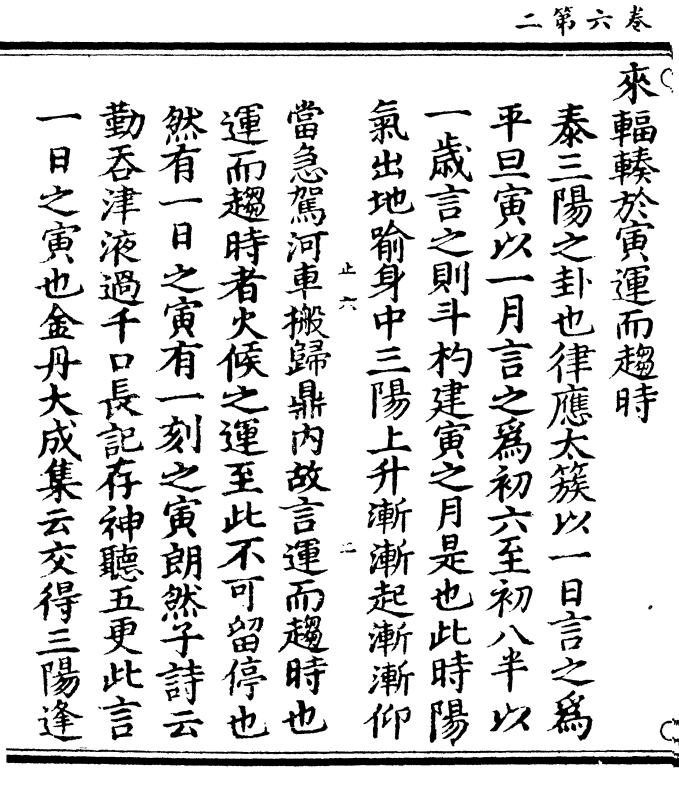 卷六第二
來輻輳於寅運而趨時
泰三陽之卦也律應太簇以一日言之爲
平旦寅以一月言之爲初六至初八半以
一歲言之則斗杓建寅之月是也此時陽
氣出地喻身中三陽上升漸漸起漸漸仰
止六 二
當急駕河車搬歸鼎內故言運而趨時也
運而趨時者火候之運至此不可留停也
然有一日之寅有一刻之寅朗然子詩云
勤吞津液過千口長記存神聽五更此言
一日之寅也金丹大成集云交得三陽逢